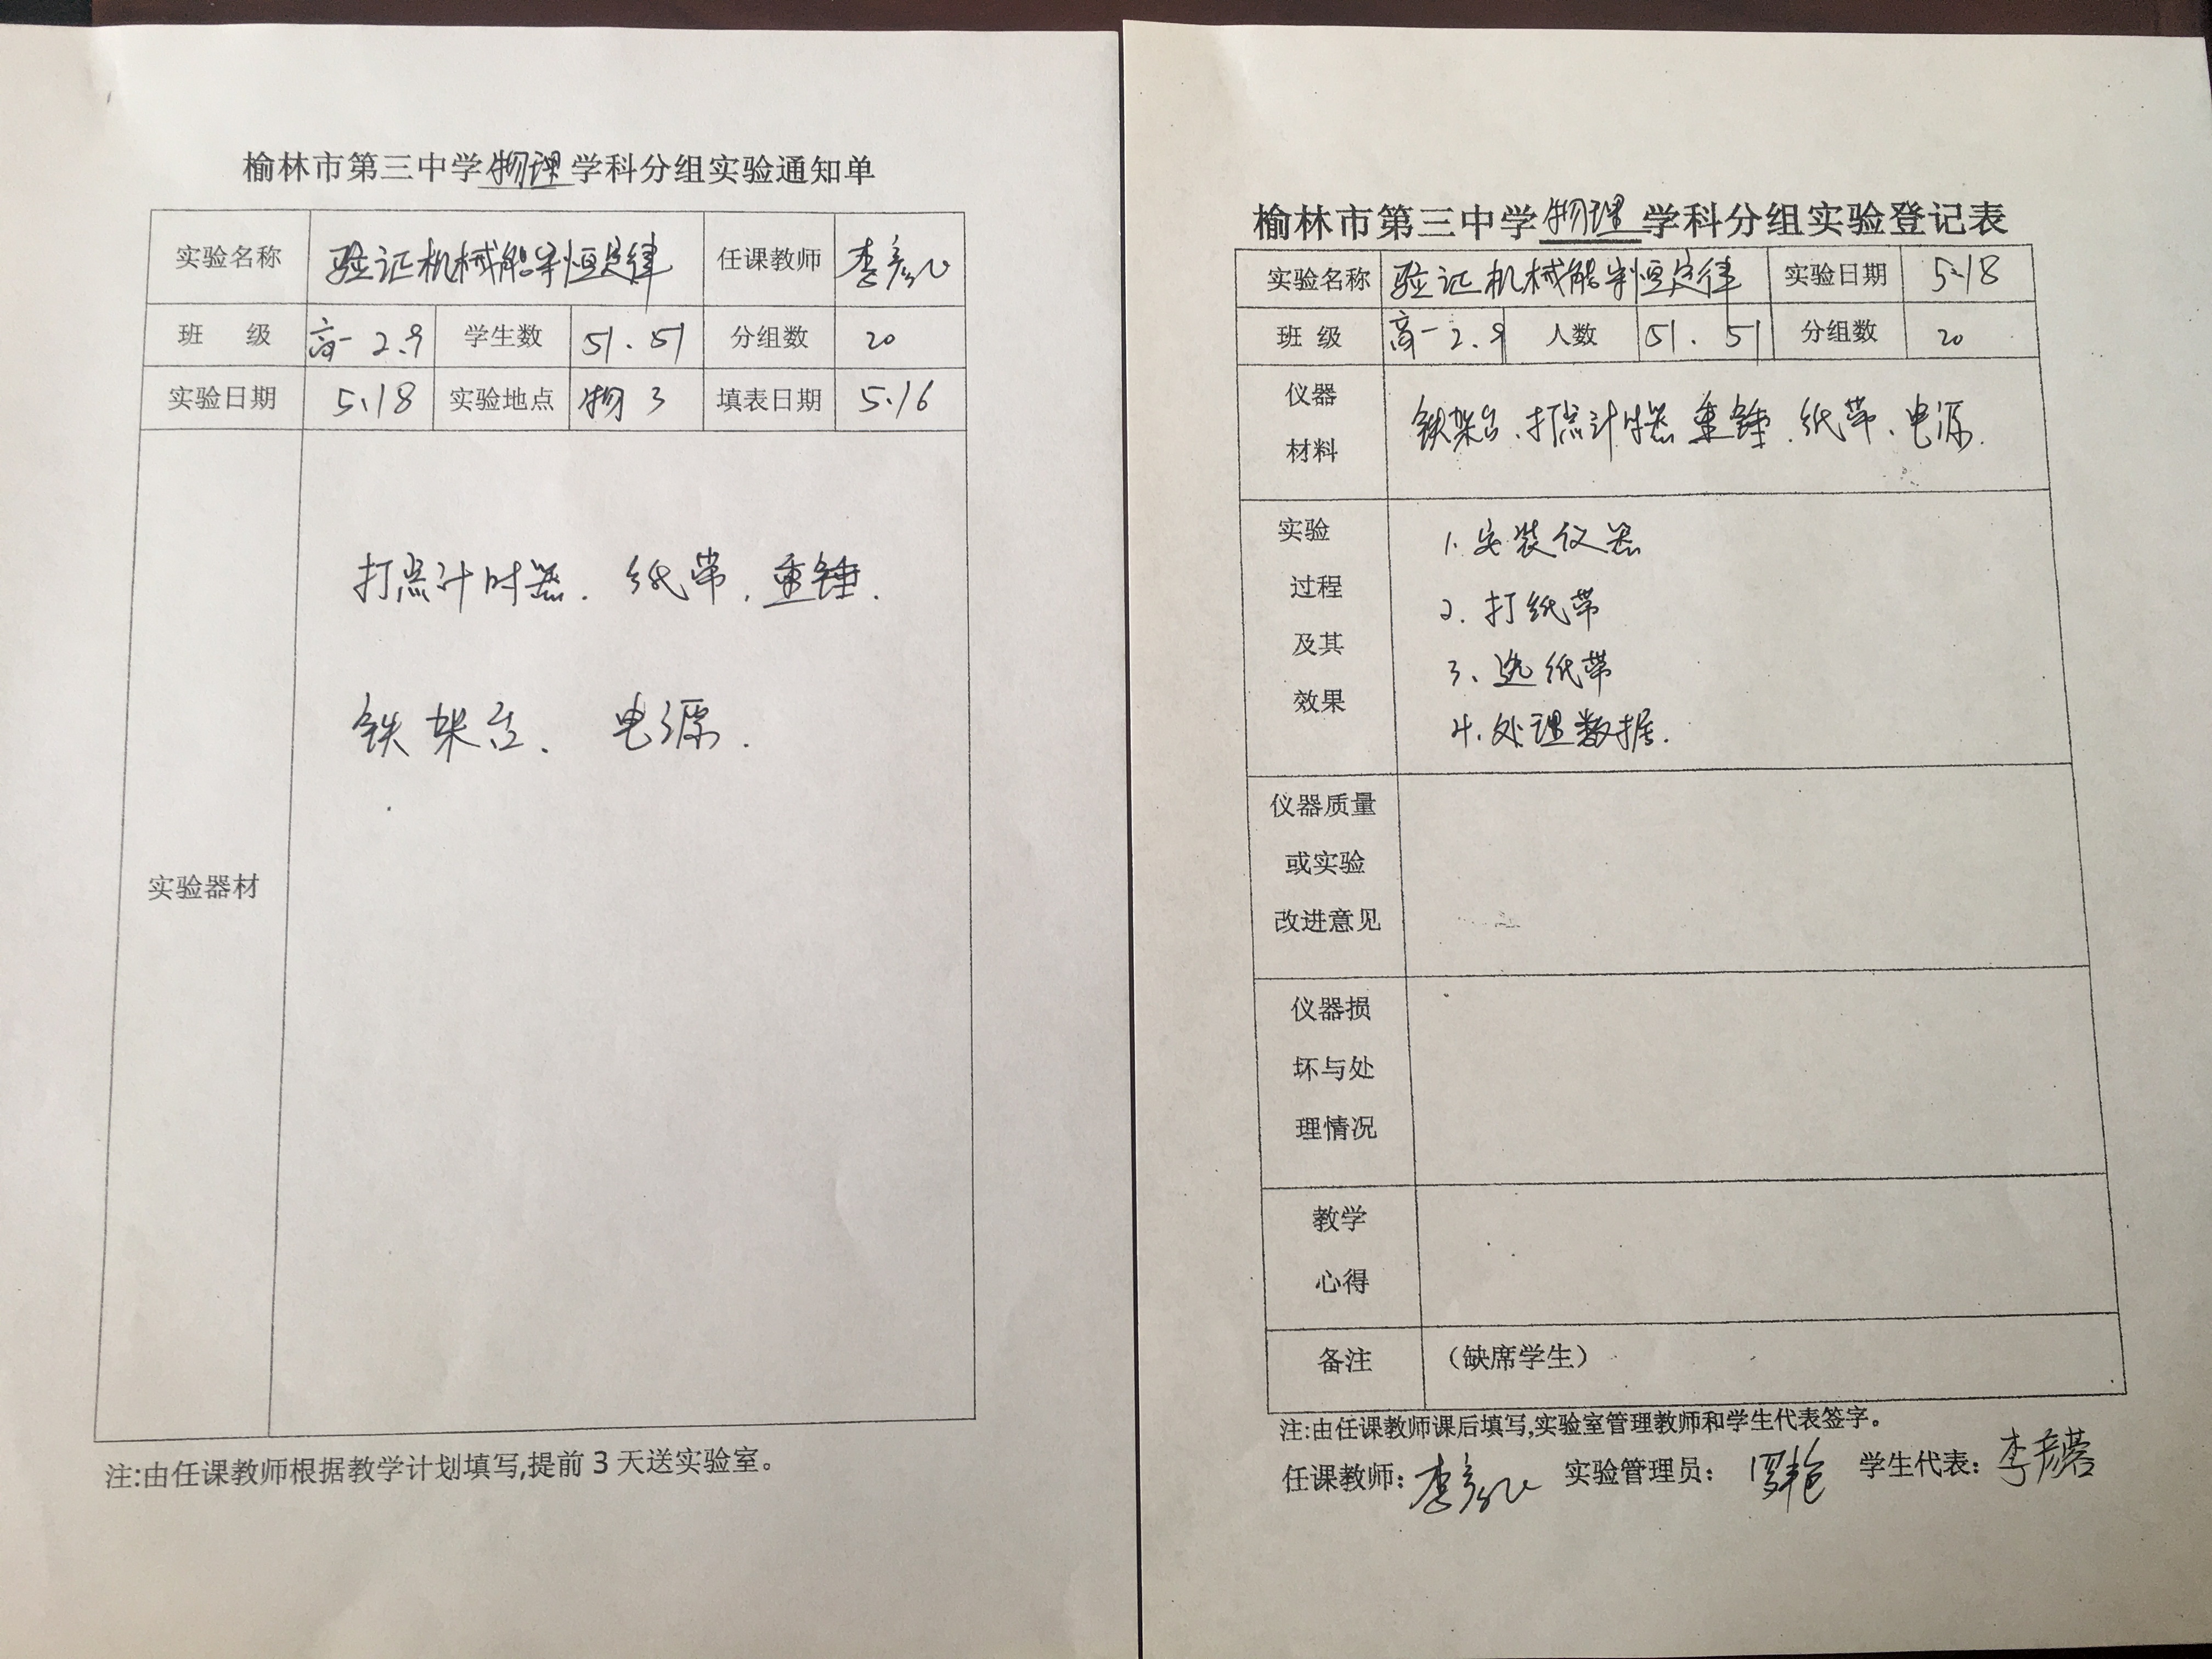 榆林市第三中学物理学科分组实验通知单
实验名称 验证机械能守恒定律 任课教师
班 级 高一2、9 学生数 51、51 分组数 20
实验日期 5、18 实验地点 物3 填表日期 5、16
打点计时器、纸带、重锤.
铁架台、电源.
实验器材
注:由任课教师根据教学计划填写,提前3天送实验室。
榆林市第三中学物理学科分组实验登记表
实验名称 验证机械能守恒定律 实验日期 5、18
班 级 高一2、9 人数 51、51 分组数 20
仪器
材料
铁架台、打点计时器 重锤、纸带、电源.
实验
过程
及其
效果
1、安装仪器
2、打纸带
3、选纸带
4、处理数据.
仪器质量
或实验
改进意见
仪器损
坏与处
理情况
教学
心得
备注 (缺席学生)
注:由任课教师课后填写,实验室管理教师和学生代表签字。
任课教师: 实验管理员: 学生代表: